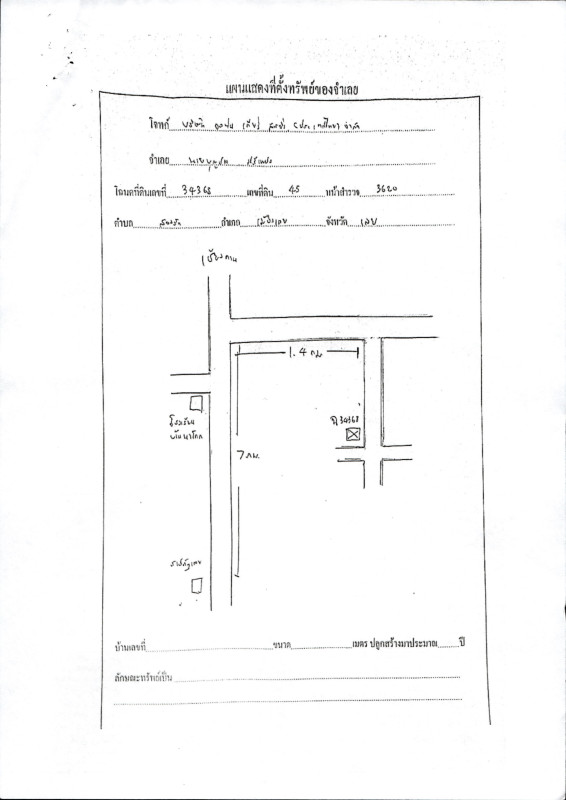 แผนแสดงที่ตั้งทรัพย์ของจำเลย
โจทก์ บริษัท จำกัด
จำเลย
โฉนดที่ดินเลขที่ 34368 เลขที่ดิน 45 หน้าสำรวจ 3620
ตำบล อำเภอ เมืองเลย จังหวัด เลย
เชียงคาน
1.4 กม
โรงเรียน
ฉ.34368
7 กม.
ราชภัฏเลย
บ้านเลขที่ ขนาด เมตร ปลูกสร้างมาประมาณ ปี
ลักษณะทรัพย์เป็น